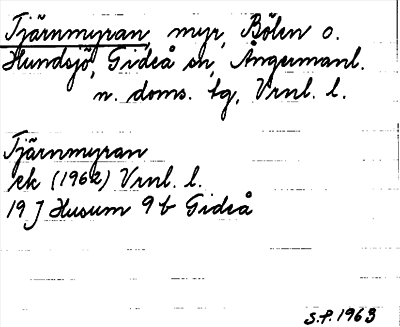 Tjärnmyran, myr, Bölen o.
Hundsjö, Gideå sn, Ångermanl.
n. doms. tg, Vrnl. l.
Tjärnmyran
ek (1962) Vrnl. l.
19 J Husum 9 b Gideå
S.P. 1963